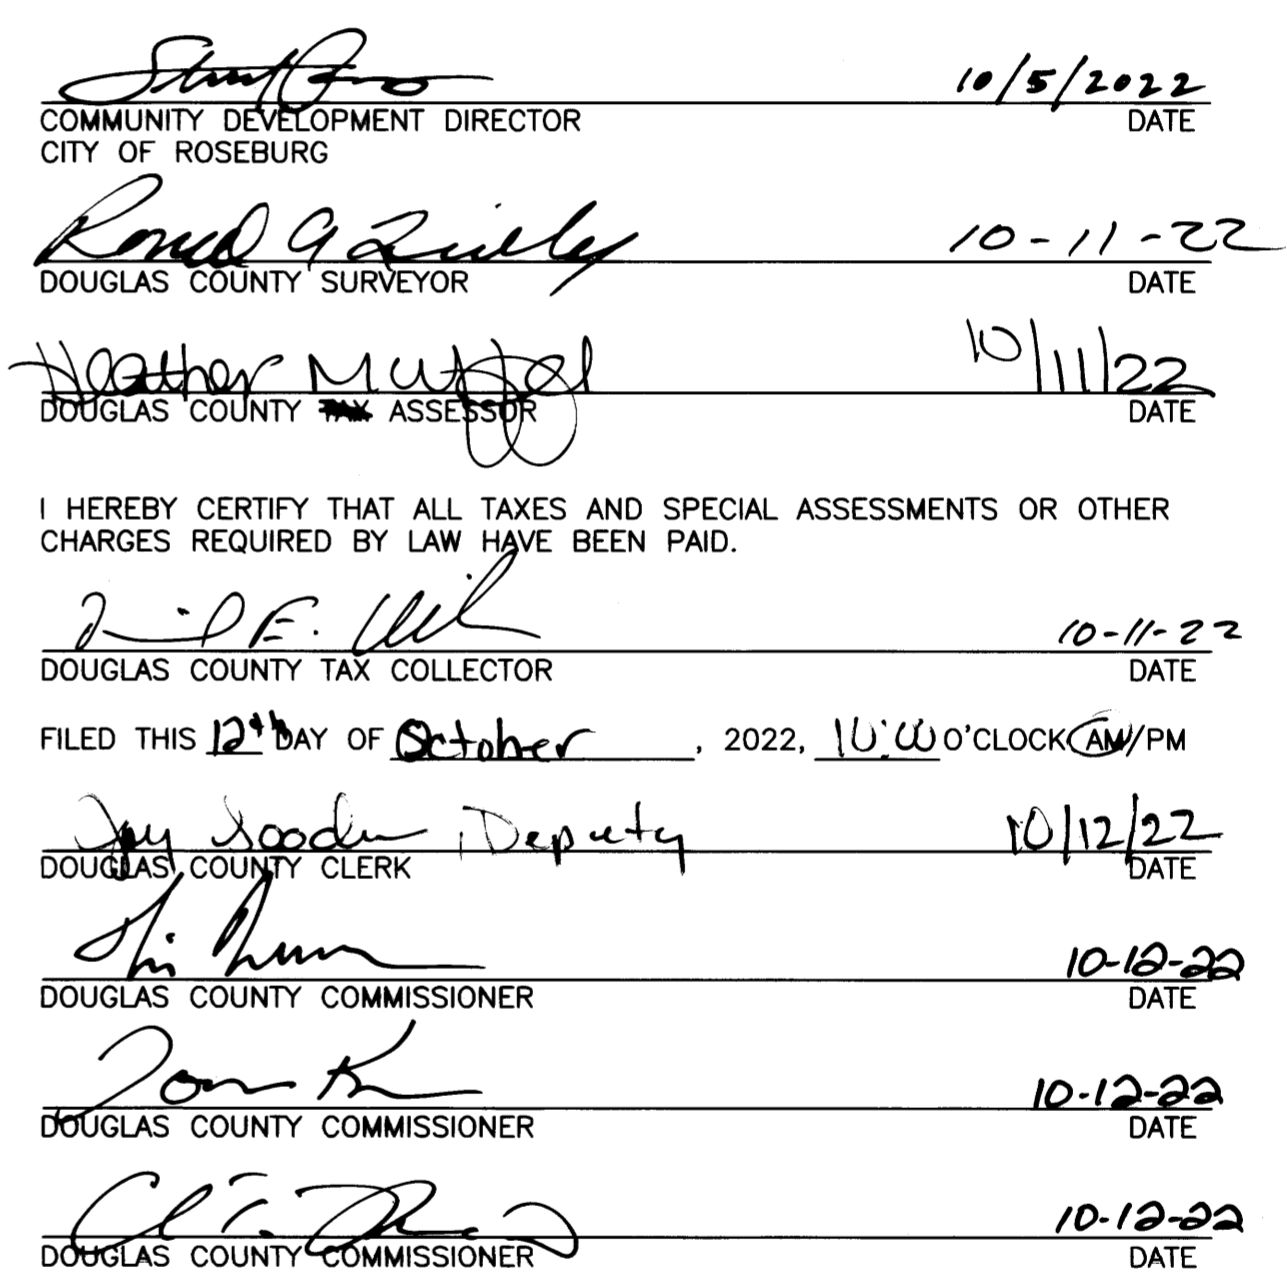 10/5/2022
COMMUNITY DEVELOPMENT DIRECTOR DATE
CITY OF ROSEBURG
Ronald A Quilley 10-11-22
DOUGLAS COUNTY SURVEYOR DATE
Heather M 10/11/22
DOUGLAS COUNTY TAX ASSESSOR DATE
I HEREBY CERTIFY THAT ALL TAXES AND SPECIAL ASSESSMENTS OR OTHER
CHARGES REQUIRED BY LAW HAVE BEEN PAID.
E. 10-11-22
DOUGLAS COUNTY TAX COLLECTOR DATE
FILED THIS 12th DAY OF October, 2022, 10:00 O'CLOCK AM/PM
Deputy 10/12/22
DOUGLAS COUNTY CLERK DATE
10-12-22
DOUGLAS COUNTY COMMISSIONER DATE
Tom 10-12-22
DOUGLAS COUNTY COMMISSIONER DATE
10-12-22
DOUGLAS COUNTY COMMISSIONER DATE